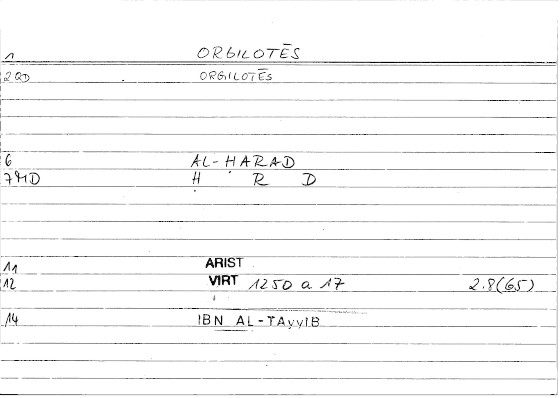 1 ORGILOTĒS
2QD ORGILOTĒS
6 AL-ḤARAD
7MD Ḥ R D
11 ARIST
12 VIRT 1250 a 17 2.8(65)
14 IBN AL-TAyyIB